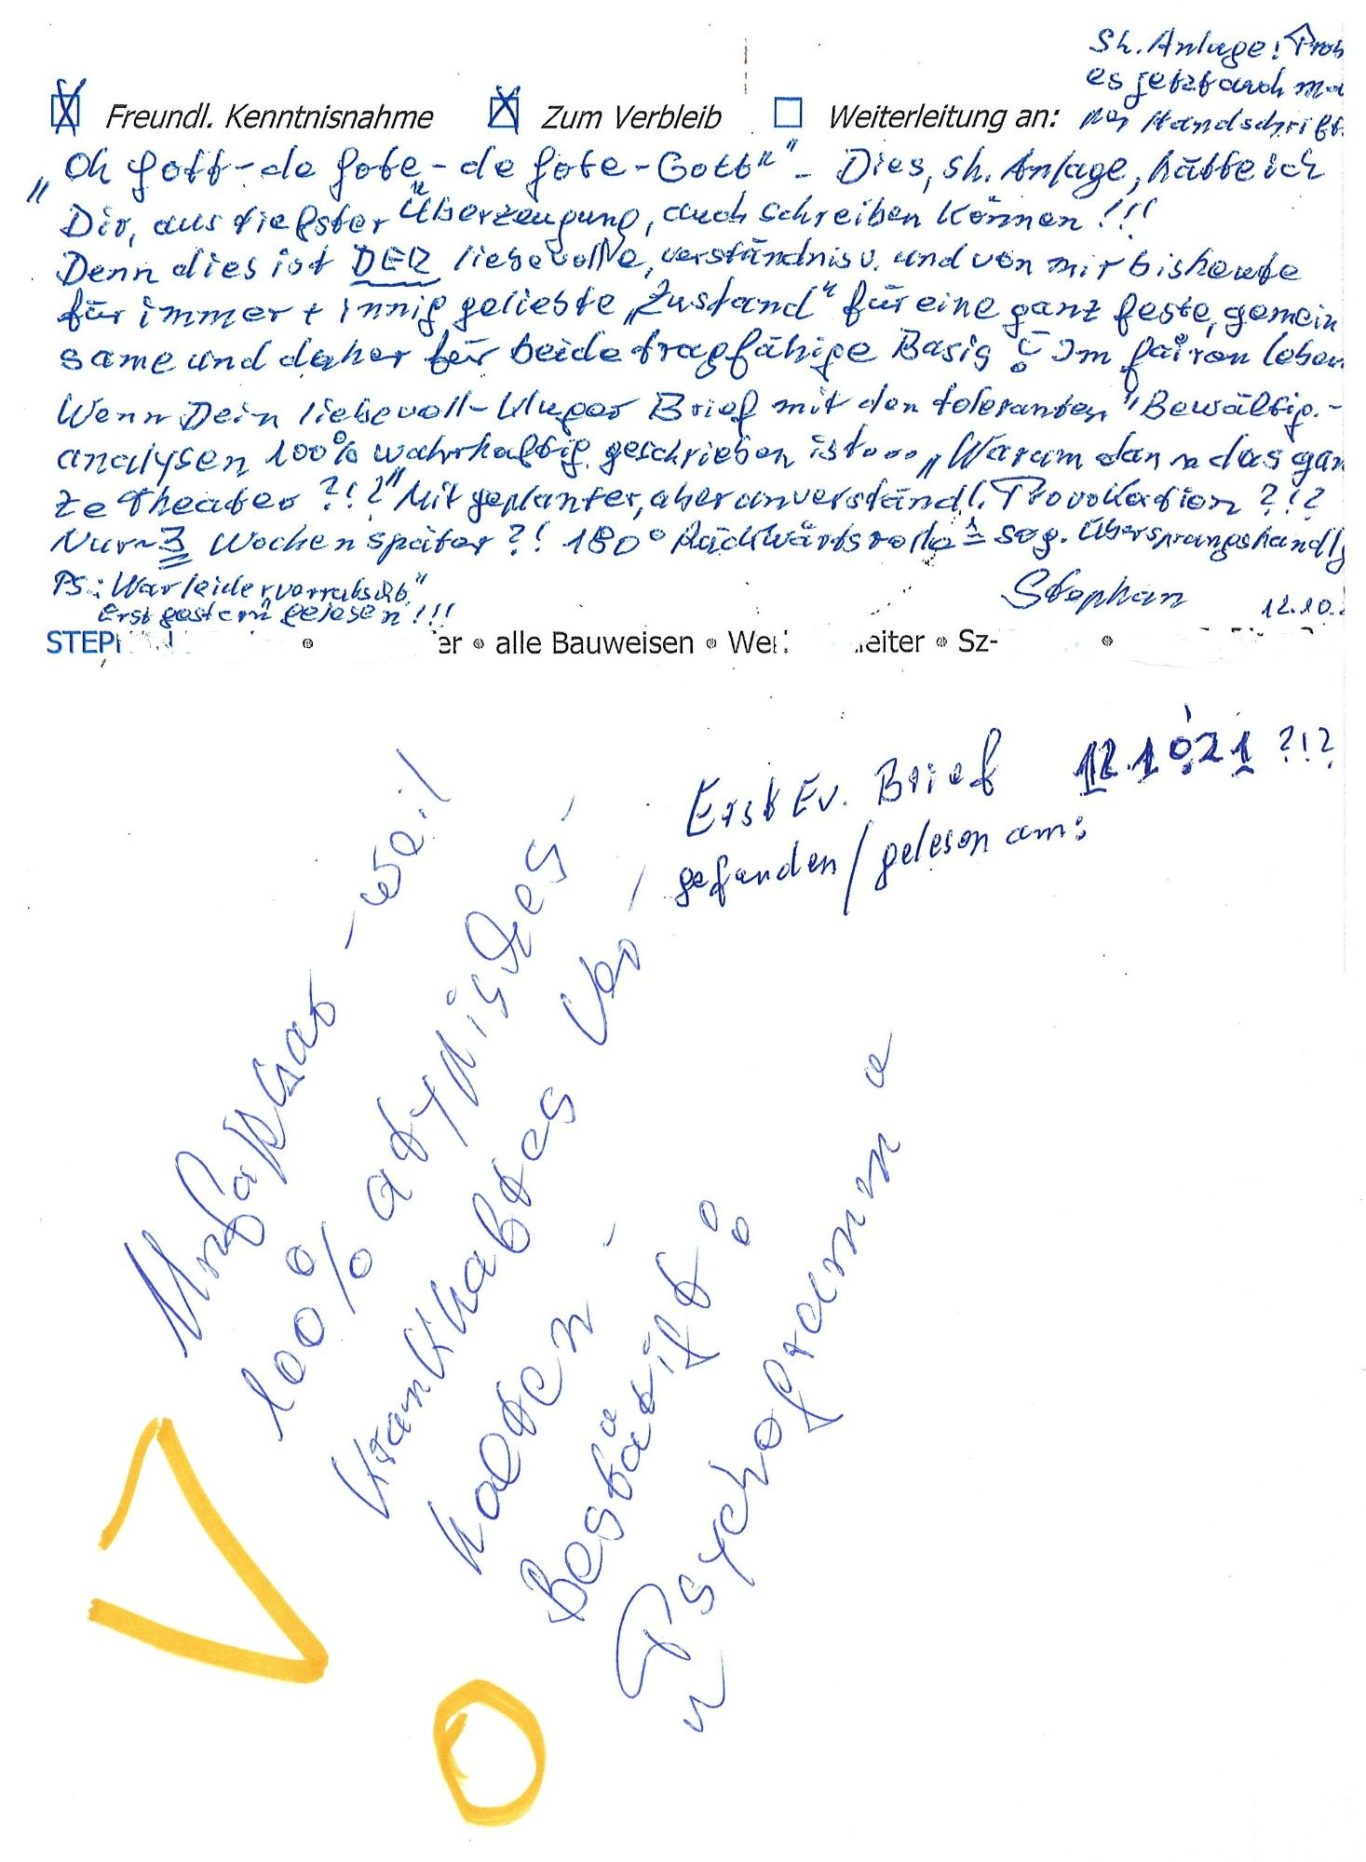 Sh. Anlage!
es jetzt auch
Handschrift.
Freundl. Kenntnisnahme Zum Verbleib Weiterleitung an:
"Oh Gott - de Gote - de Gote - Gott" - Dies, sh. Anlage, hätte ich
Dir, aus tiefster Überzeugung, auch schreiben können!!!
Denn dies ist DER liebevolle, verständnisv. und von mir bis heute
für immer + innig geliebte „Zustand" für eine ganz feste, gemein
same und daher für beide tragfähige Basis! Im fairen Leben
Wenn Dein liebevoll-kluger Brief mit den toleranten "Bewältig.-
analysen 100% wahrhaftig geschrieben ist... „Warum dann das gan
ze Theater ?!?" Mit geplanter, aber unverständl. Provokation ?!?
Nur ~3 Wochen später ?! 180° Rückwärtsrolle ≙ sog. Übersprungshandl
PS.: War leider
Erst gestern gelesen!!!
Stephan 12.10.
STEP
er • alle Bauweisen • We eiter • Sz-
Erst Ev. Brief 12.10.21 ?!?
gefunden / gelesen am:
Unfassbar - weil
100% atypisches -
krankhaftes Ver-
halten -
Bestätigt:
"Psychogramm"